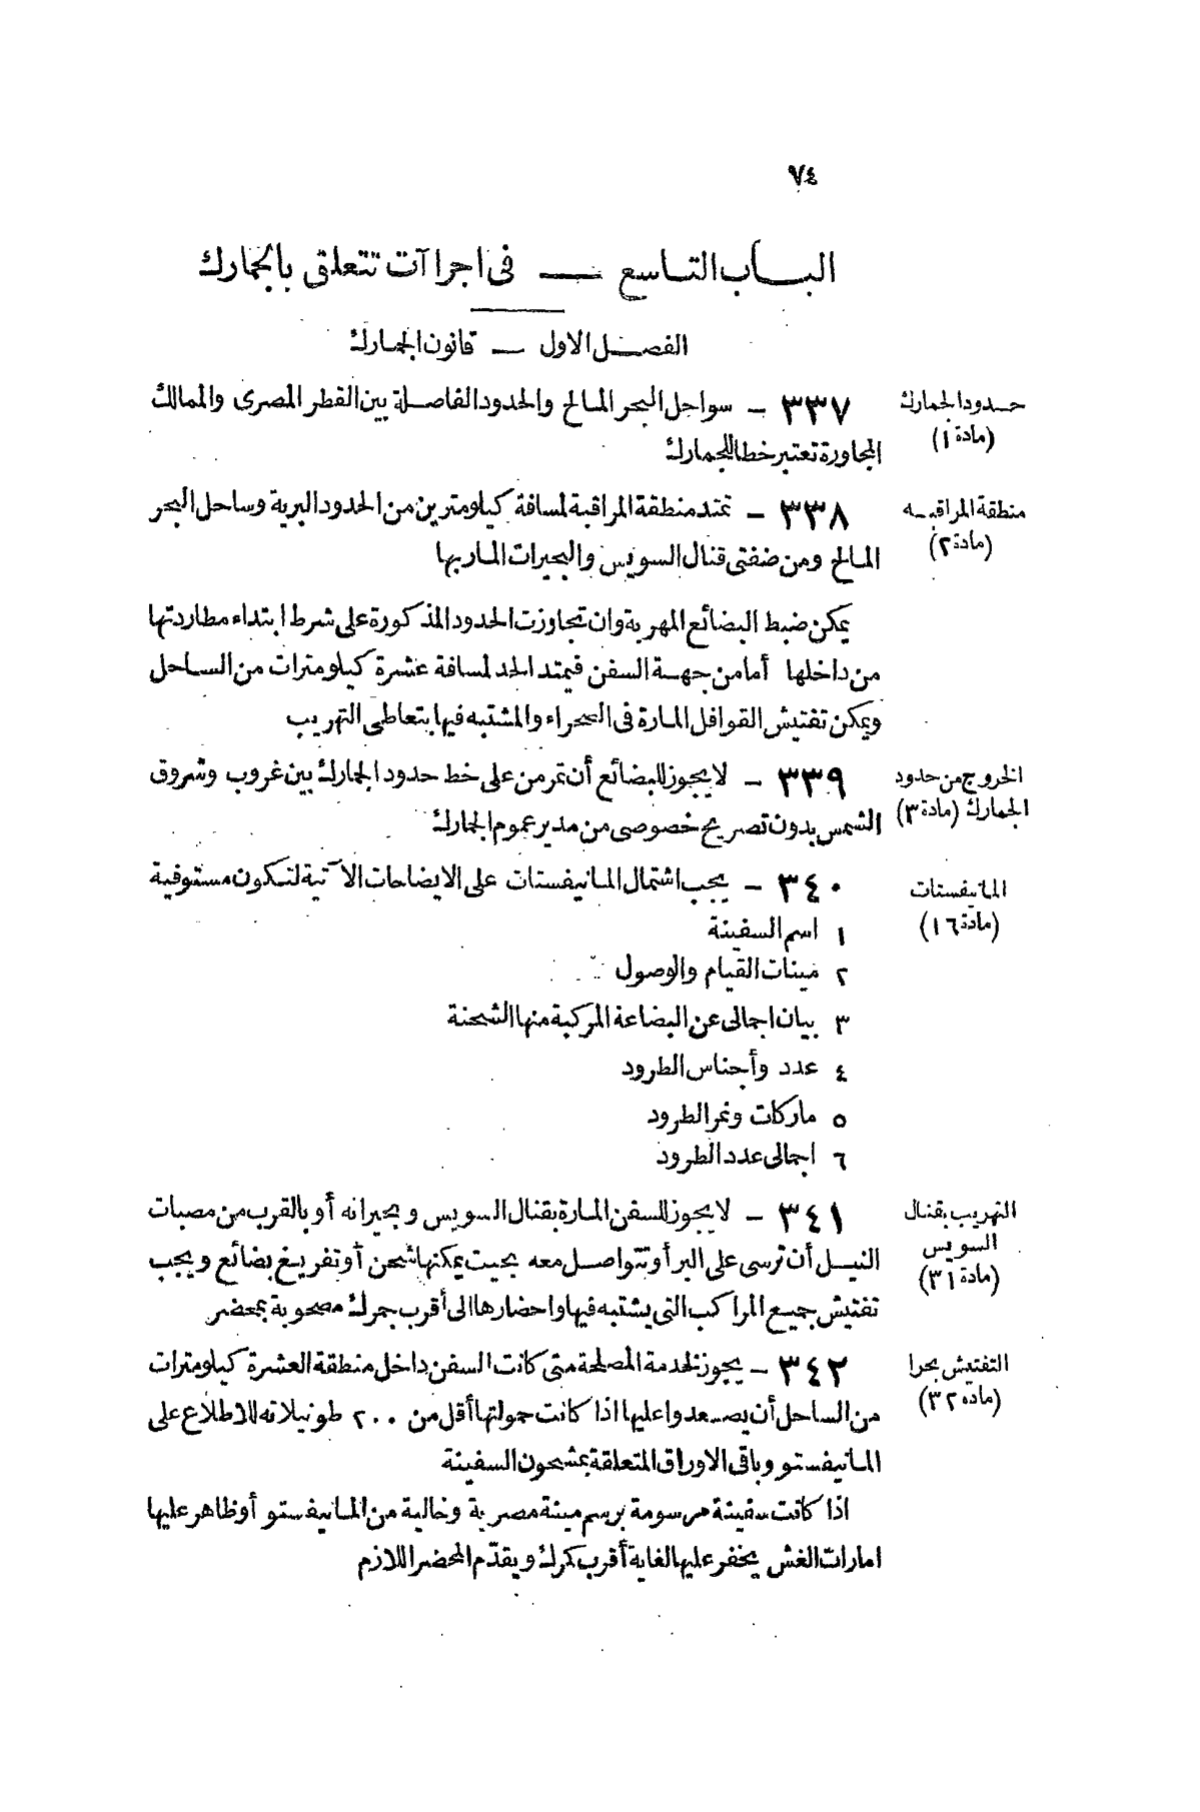 ٧٤
الباب التاسع — فى اجراآت تتعلق بالجمارك
الفصل الاول — قانون الجمارك
حدود الجمارك
(مادة ١)
٣٣٧ — سواحل البحر المالح والحدود الفاصلة بين القطر المصرى والممالك
المجاورة تعتبر خطا للجمارك
منطقة المراقبه
(مادة ٢)
٣٣٨ — تمتد منطقة المراقبة لمسافة كيلومترين من الحدود البرية وساحل البحر
المالح ومن ضفتى قنال السويس والبحيرات المار بها
يمكن ضبط البضائع المهربة وان تجاوزت الحدود المذكورة على شرط ابتداء مطاردتها
من داخلها أما من جهة السفن فيمتد الحد لمسافة عشرة كيلومترات من الساحل
ويمكن تفتيش القوافل المارة فى الصحراء والمشتبه فيها بتعاطى التهريب
الخروج من حدود
الجمارك (مادة ٣)
٣٣٩ — لا يجوز للبضائع أن تمر من على خط حدود الجمارك بين غروب وشروق
الشمس بدون تصريح خصوصى من مدير عموم الجمارك
المانيفستات
(مادة ١٦)
٣٤٠ — يجب اشتمال المانيفستات على الايضاحات الآتية لتكون مستوفية
١ اسم السفينة
٢ مينات القيام والوصول
٣ بيان اجمالى عن البضاعة المركبة منها الشحنة
٤ عدد وأجناس الطرود
٥ ماركات ونمر الطرود
٦ اجمالى عدد الطرود
التهريب بقنال
السويس
(مادة ٣١)
٣٤١ — لا يجوز للسفن المارة بقنال السويس وبحيراته أو بالقرب من مصبات
النيل أن ترسى على البر أو تتواصل معه بحيث يمكنها شحن أو تفريغ بضائع ويجب
تفتيش جميع المراكب التى يشتبه فيها واحضارها الى أقرب جمرك مصحوبة بمحضر
التفتيش بحرا
(ماده ٣٢)
٣٤٢ — يجوز لخدمة المصلحة متى كانت السفن داخل منطقة العشرة كيلومترات
من الساحل أن يصعدوا عليها اذا كانت حمولتها أقل من ٢٠٠ طونيلاته للاطلاع على
المانيفستو وباقى الاوراق المتعلقة بمشحون السفينة
اذا كانت سفينة مرسومة برسم مينة مصرية وخالية من المانيفستو أو ظاهر عليها
امارات الغش يخفر عليها لغاية أقرب كمرك ويقدّم المحضر اللازم